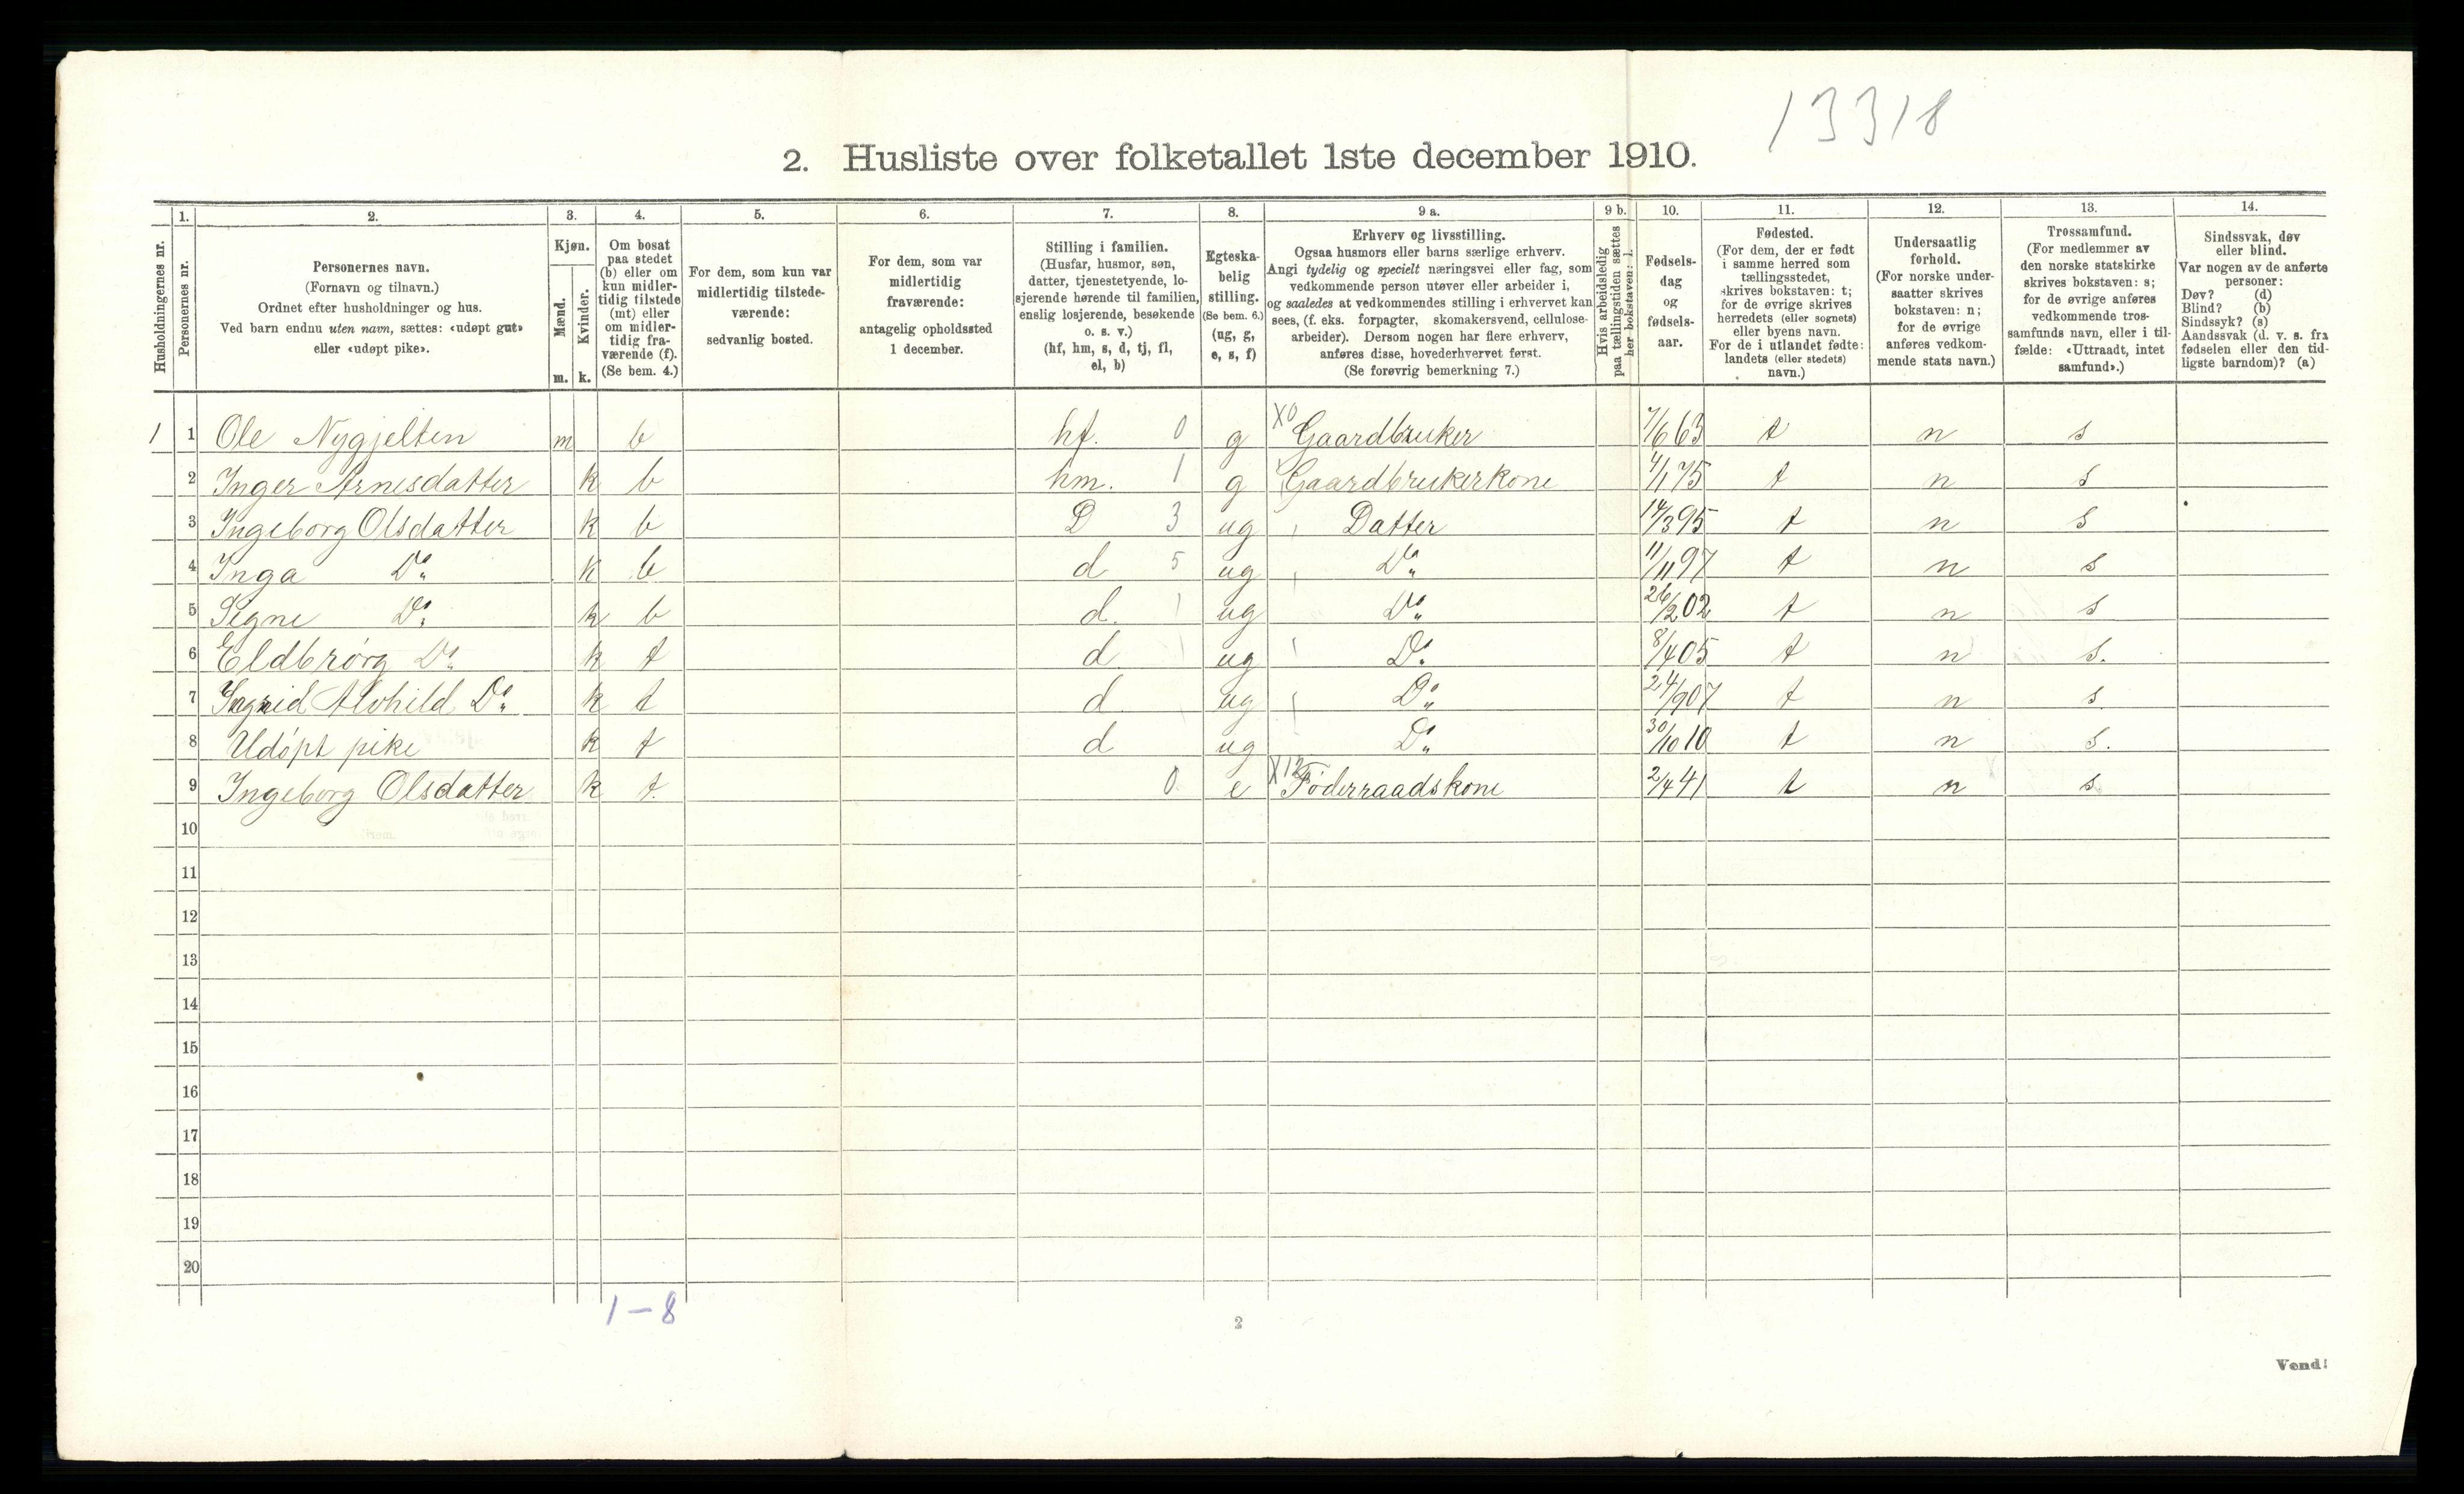 13318
2. Husliste over folketallet 1ste december 1910.
Husholdningernes nr.
1. Personernes nr.
2. Personernes navn.
(Fornavn og tilnavn.)
Ordnet efter husholdninger og hus.
Ved barn endnu uten navn, sættes: «udøpt gut»
eller «udøpt pike».
3. Kjøn.
Mænd. m.
Kvinder. k.
4. Om bosat
paa stedet
(b) eller om
kun midler-
tidig tilstede
(mt) eller
om midler-
tidig fra-
værende (f).
(Se bem. 4.)
5. For dem, som kun var
midlertidig tilstede-
værende:
sedvanlig bosted.
6. For dem, som var
midlertidig
fraværende:
antagelig opholdssted
1 december.
7. Stilling i familien.
(Husfar, husmor, søn,
datter, tjenestetyende, lo-
sjerende hørende til familien,
enslig losjerende, besøkende
o. s. v.)
(hf, hm, s, d, tj, fl,
el, b)
8. Egteska-
belig
stilling.
(Se bem. 6.)
(ug, g,
e, s, f)
9 a. Erhverv og livsstilling.
Ogsaa husmors eller barns særlige erhverv.
Angi tydelig og specielt næringsvei eller fag, som
vedkommende person utøver eller arbeider i,
og saaledes at vedkommendes stilling i erhvervet kan
sees, (f. eks. forpagter, skomakersvend, cellulose-
arbeider). Dersom nogen har flere erhverv,
anføres disse, hovederhvervet først.
(Se forøvrig bemerkning 7.)
9 b. Hvis arbeidsledig
paa tællingstiden sættes
her bokstaven: l.
10. Fødsels-
dag
og
fødsels-
aar.
11. Fødested.
(For dem, der er født
i samme herred som
tællingsstedet,
skrives bokstaven: t;
for de øvrige skrives
herredets (eller sognets)
eller byens navn.
For de i utlandet fødte:
landets (eller stedets)
navn.)
12. Undersaatlig
forhold.
(For norske under-
saatter skrives
bokstaven: n;
for de øvrige
anføres vedkom-
mende stats navn.)
13. Trossamfund.
(For medlemmer av
den norske statskirke
skrives bokstaven: s;
for de øvrige anføres
vedkommende tros-
samfunds navn, eller i til-
fælde: «Uttraadt, intet
samfund».)
14. Sindssvak, døv
eller blind.
Var nogen av de anførte
personer:
Døv? (d)
Blind? (b)
Sindssyk? (s)
Aandssvak (d. v. s. fra
fødselen eller den tid-
ligste barndom)? (a)
1 1 Ole Nygjelten m b hf. 0 g X0 Gaardbruker 7/6 63 t n s
2 Inger Arnesdatter k b hm. 1 g Gaardbrukerkone 4/1 75 t n s
3 Ingeborg Olsdatter k b D 3 ug Datter 14/3 95 t n s
4 Inga Do k b d 5 ug Do 11/11 97 t n s
5 Signe Do k b d. 1 ug Do 26/2 02 t n s
6 Eldbrørg Do k t d ug Do 8/4 05 t n s.
7 Ingrid Alvhild Do k t d ug Do 24/9 07 t n s.
8 Udøpt pike k t d ug Do 30/10 10 t n s.
9 Ingeborg Olsdatter k t. 0 e Føderraadskone 2/4 41 t n s.
10
11
12
13
14
15
16
17
18
19
20
1-8
2
Vend!